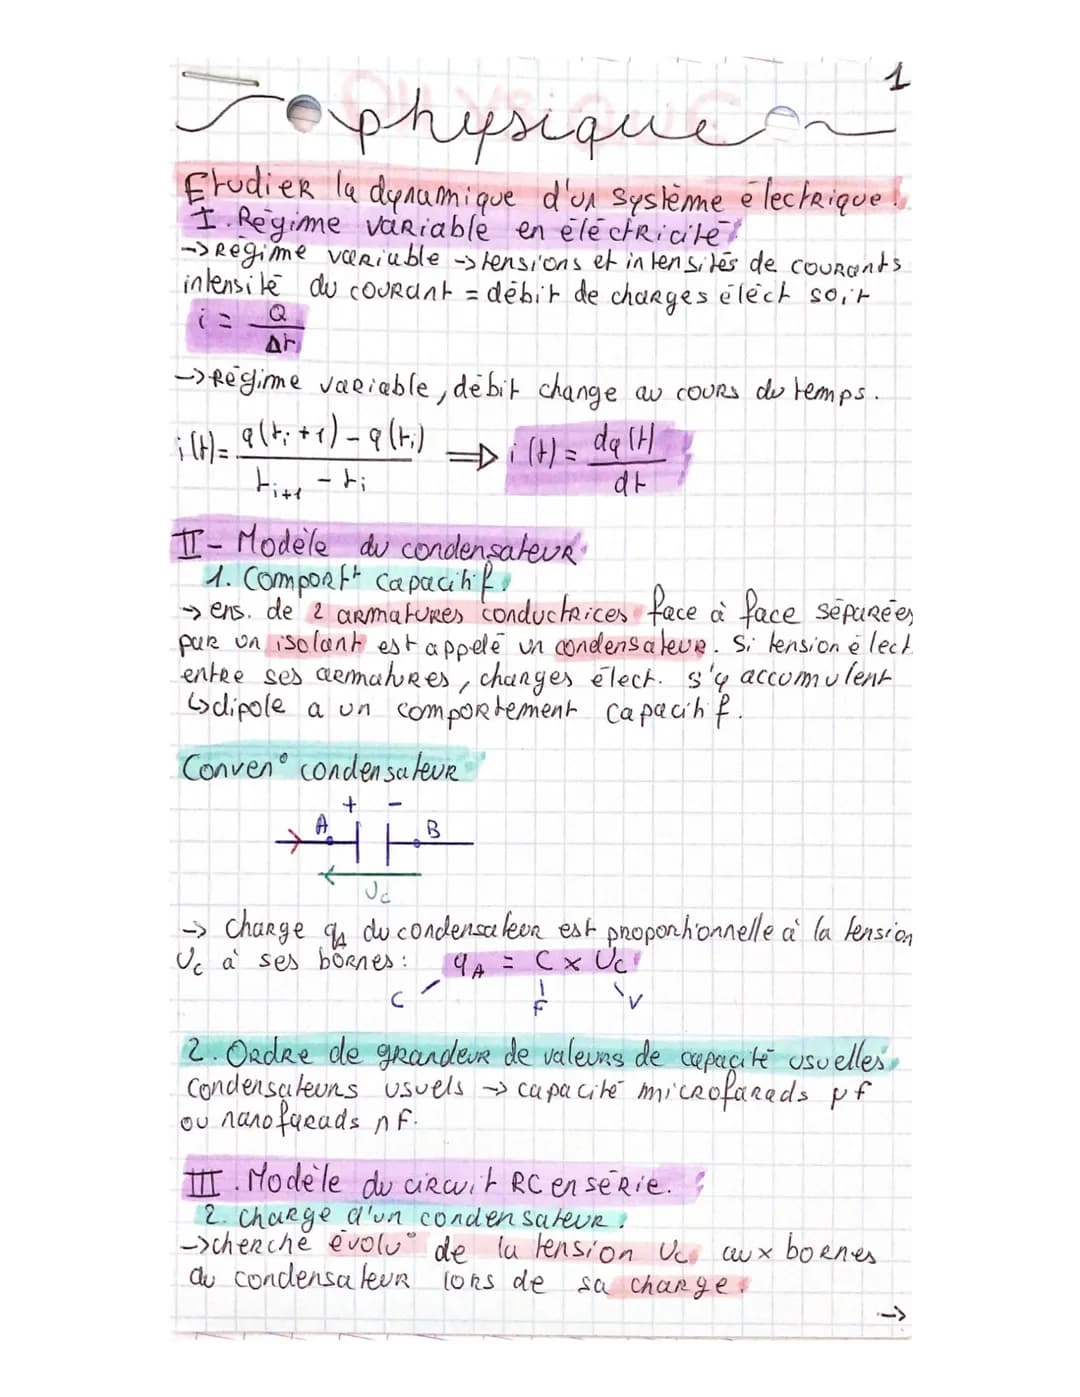 1
physique
Etudier la dynamique d'un système électrique.
I. Régime variable en électricité
-> Régime variable -> tensions et intensités de courants
intensité du courant = débit de charges élect soit
i = Q / Δt
-> Régime variable, débit change au cours du temps.
i(t) = q(ti+1) - q(ti) / ti+1 - ti ⟹ i(t) = dq(t) / dt
II - Modèle du condensateur
1. Comportt capacitif.
-> ens. de 2 armatures conductrices face à face séparées
par un isolant est appelé un condensateur. Si tension élect.
entre ses armatures, charges élect. s'y accumulent
↳ dipole a un comportement capacitif.
Conven° condensateur
+ -
A B
Uc
-> Charge qA du condensateur est proportionnelle à la tension
Uc à ses bornes : qA = C x Uc
C F V
2. Ordre de grandeur de valeurs de capacité usuelles
Condensateurs usuels -> capacité microfarads µf
ou nanofarads nF.
III. Modèle du circuit RC en série.
2. charge d'un condensateur.
-> cherche évolu° de la tension Uc aux bornes
du condensateur lors de sa charge.
->